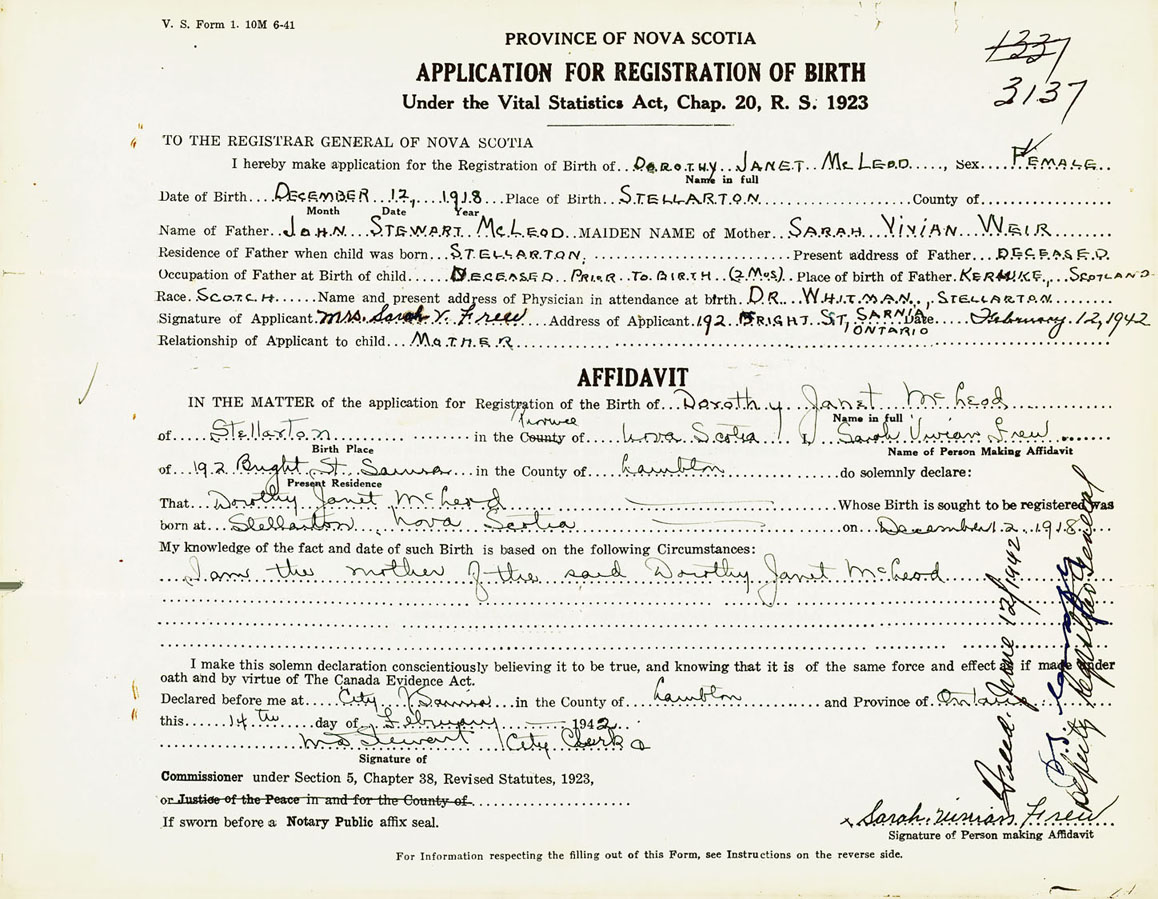 V. S. Form 1. 10M 6-41
PROVINCE OF NOVA SCOTIA
1337
3137
APPLICATION FOR REGISTRATION OF BIRTH
Under the Vital Statistics Act, Chap. 20, R. S. 1923
TO THE REGISTRAR GENERAL OF NOVA SCOTIA
I hereby make application for the Registration of Birth of DOROTHY JANET McLEOD, Sex FEMALE
Name in full
Date of Birth DECEMBER 12, 1918 Place of Birth STELLARTON County of
Month Date Year
Name of Father JOHN STEWART McLEOD MAIDEN NAME of Mother SARAH VIVIAN WEIR
Residence of Father when child was born STELLARTON, Present address of Father DECEASED
Occupation of Father at Birth of child DECEASED PRIOR TO BIRTH (2 Mos) Place of birth of Father SCOTLAND
Race SCOTCH Name and present address of Physician in attendance at birth DR. WHITMAN, STELLARTON
Signature of Applicant Mrs. Sarah V. Frew Address of Applicant 192 BRIGHT ST, SARNIA ONTARIO Date February 12, 1942
Relationship of Applicant to child MOTHER
AFFIDAVIT
IN THE MATTER of the application for Registration of the Birth of Dorothy Janet McLeod
Name in full
of Stellarton in the County Province of Nova Scotia I Sarah Vivian Frew
Birth Place Name of Person Making Affidavit
of 192 Bright St. Sarnia in the County of Lambton do solemnly declare:
Present Residence
That Dorothy Janet McLeod Whose Birth is sought to be registered was
born at Stellarton Nova Scotia on December 12 1918
My knowledge of the fact and date of such Birth is based on the following Circumstances:
I am the mother of the said Dorothy Janet McLeod
I make this solemn declaration conscientiously believing it to be true, and knowing that it is of the same force and effect as if made under
oath and by virtue of The Canada Evidence Act.
Declared before me at City of Sarnia in the County of Lambton and Province of Ontario
this 14th day of February 1942
Stewart City Clerk
Signature of
Commissioner under Section 5, Chapter 38, Revised Statutes, 1923,
or Justice of the Peace in and for the County of
If sworn before a Notary Public affix seal.
x Sarah Vivian Frew
Signature of Person making Affidavit
For Information respecting the filling out of this Form, see Instructions on the reverse side.
Filed June 12/1942
Deputy Registrar General